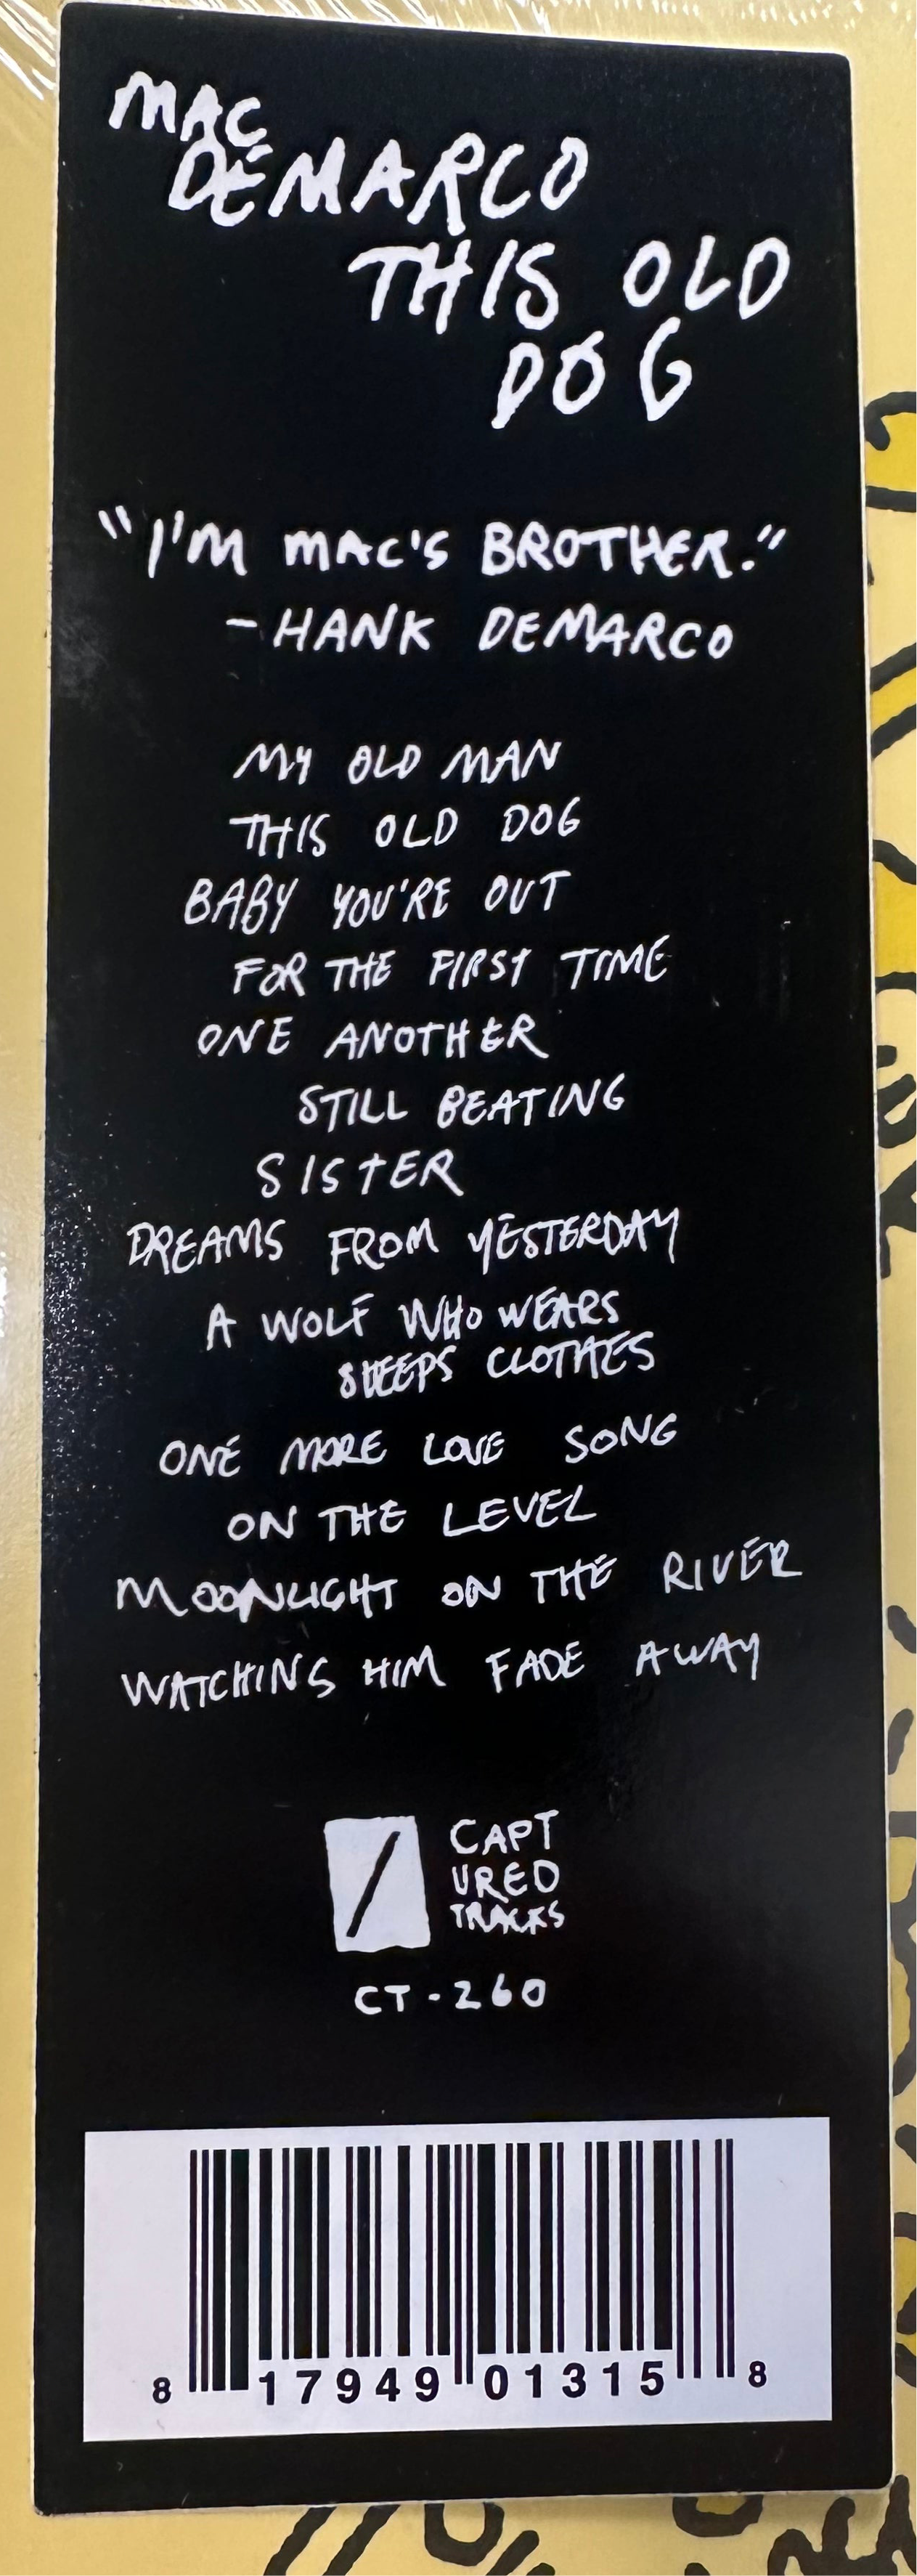 MAC
DEMARCO
THIS OLD
DOG
"I'M MAC'S BROTHER."
-HANK DEMARCO
MY OLD MAN
THIS OLD DOG
BABY YOU'RE OUT
FOR THE FIRST TIME
ONE ANOTHER
STILL BEATING
SISTER
DREAMS FROM YESTERDAY
A WOLF WHO WEARS
SHEEPS CLOTHES
ONE MORE LOVE SONG
ON THE LEVEL
MOONLIGHT ON THE RIVER
WATCHING HIM FADE AWAY
CAPT
URED
TRACKS
CT-260
8 17949 01315 8